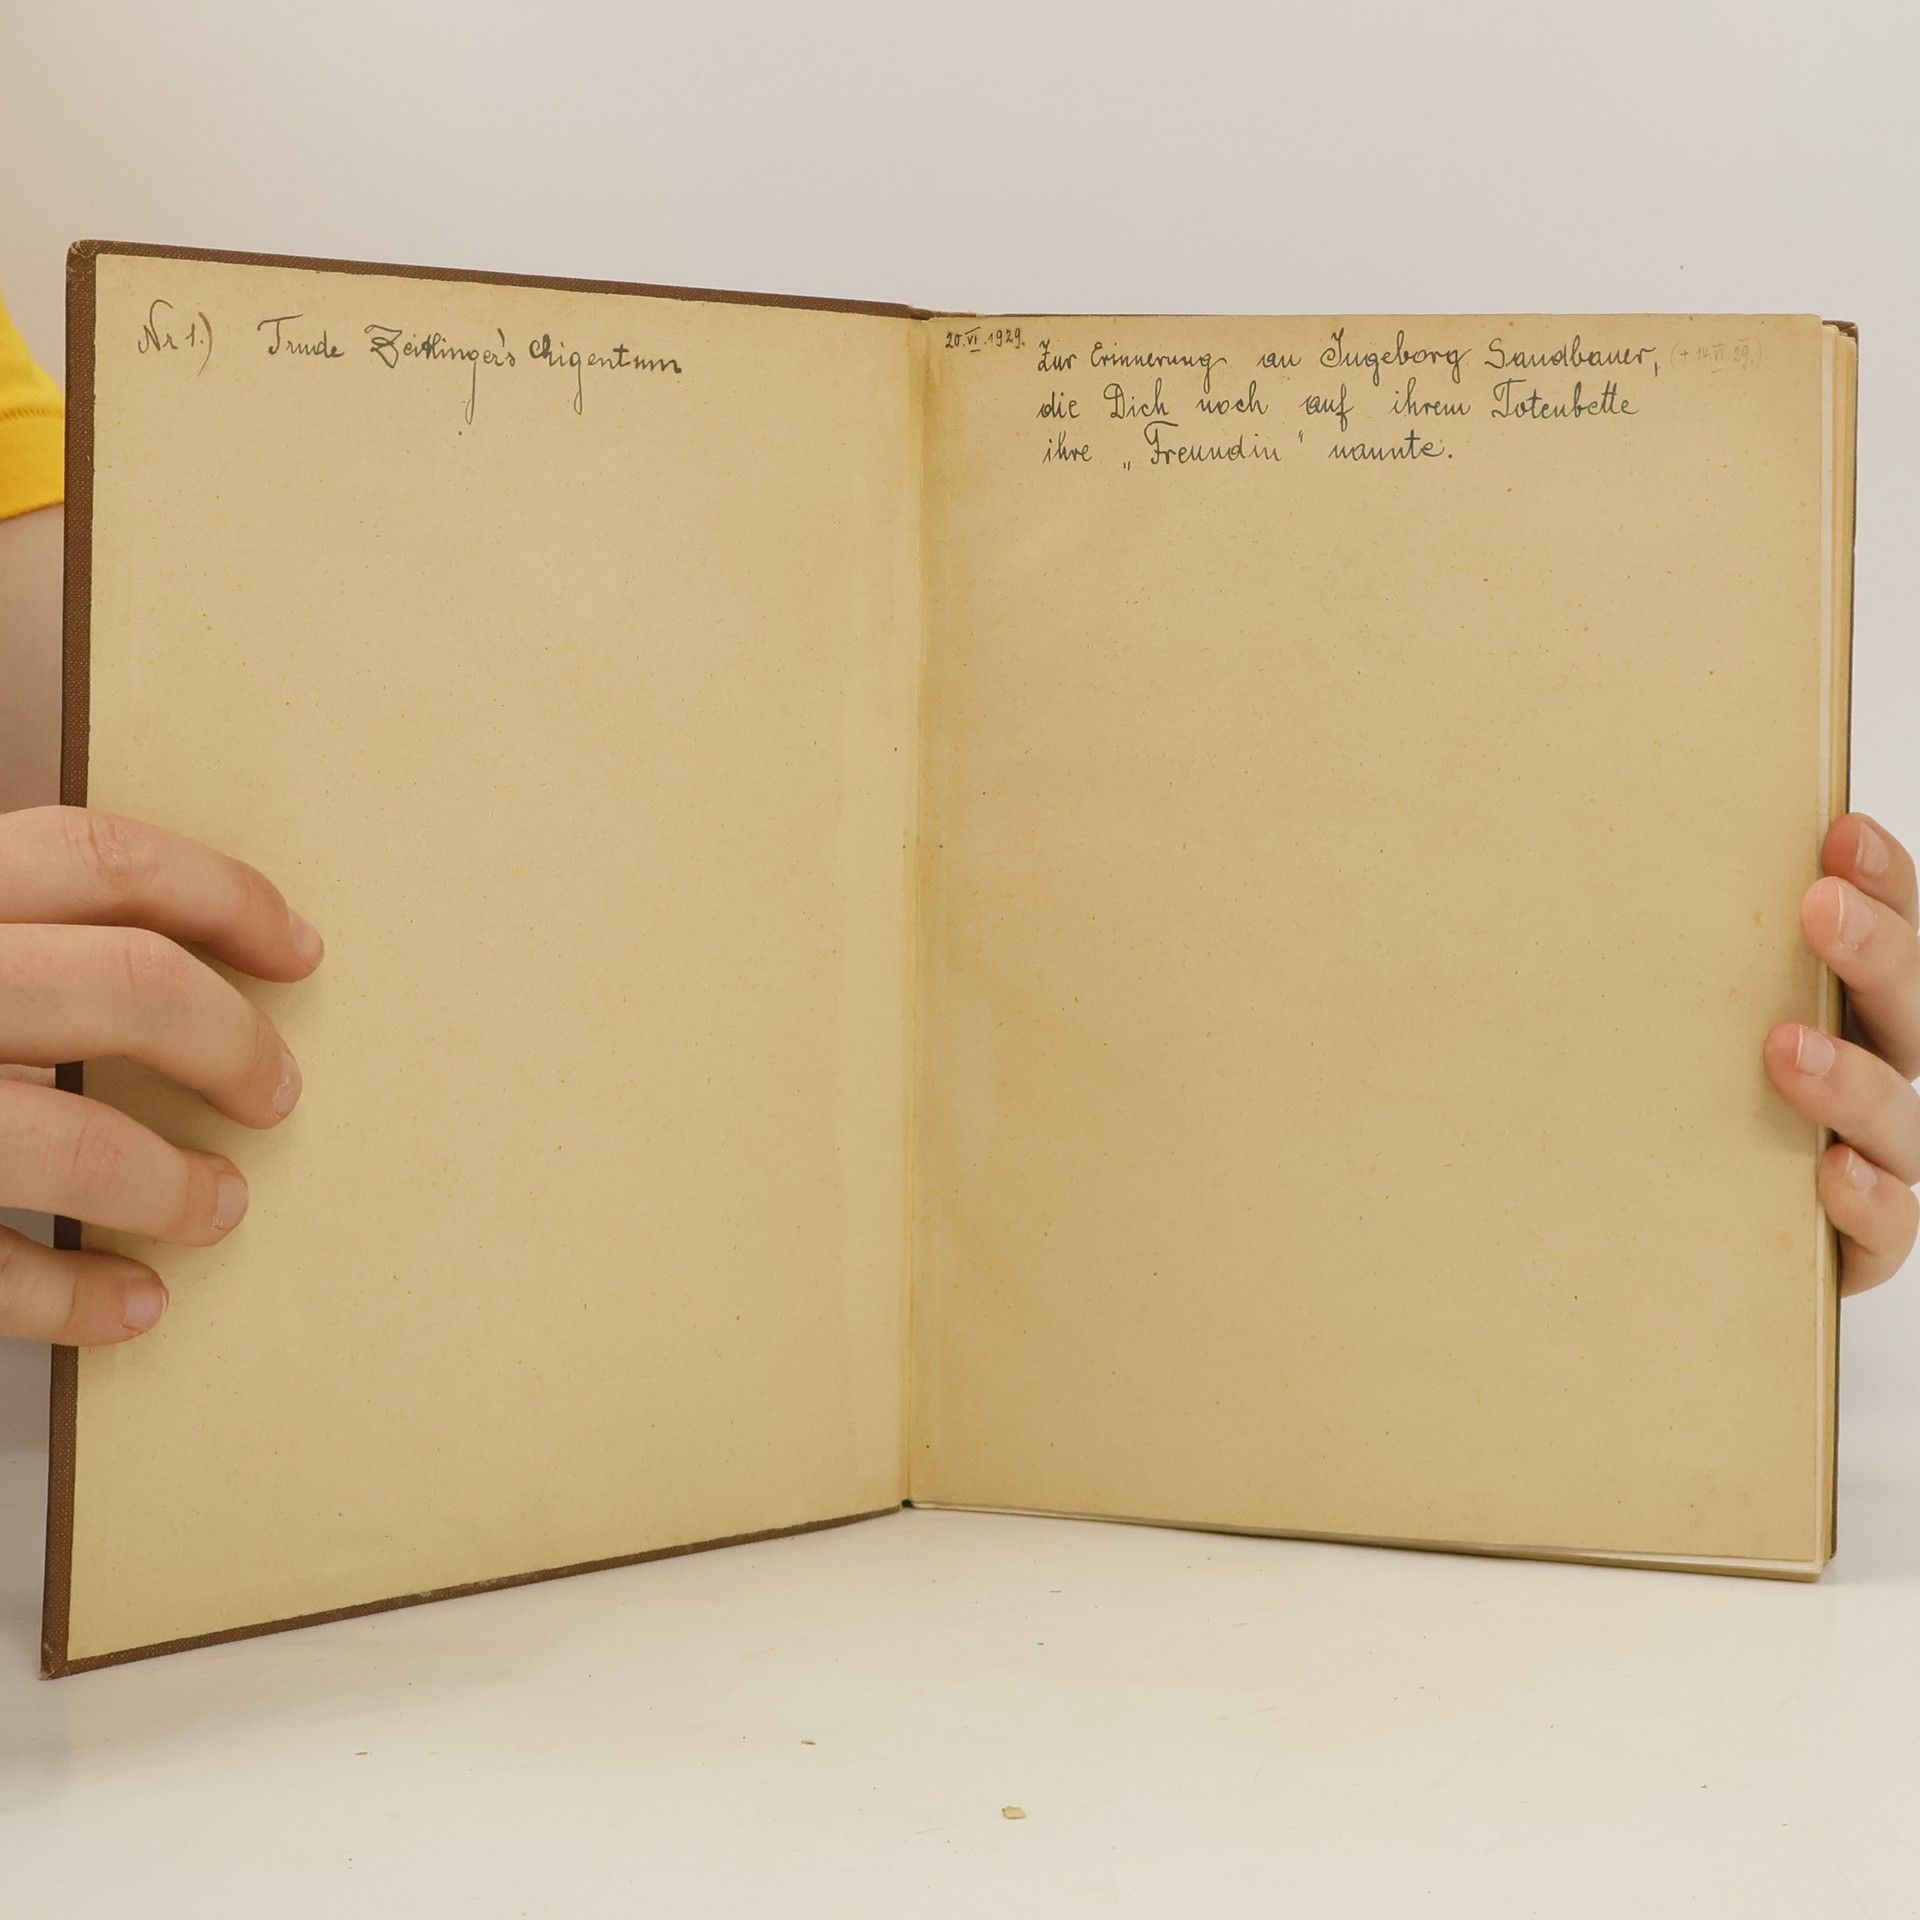 Nr 1.) Trude Zeitlinger's Eigentum
20.VI.1929.
Zur Erinnerung an Ingeborg Sandbauer, (+ 14.VI.29.)
die Dich noch auf ihrem Totenbette
ihre „Freundin" nannte.